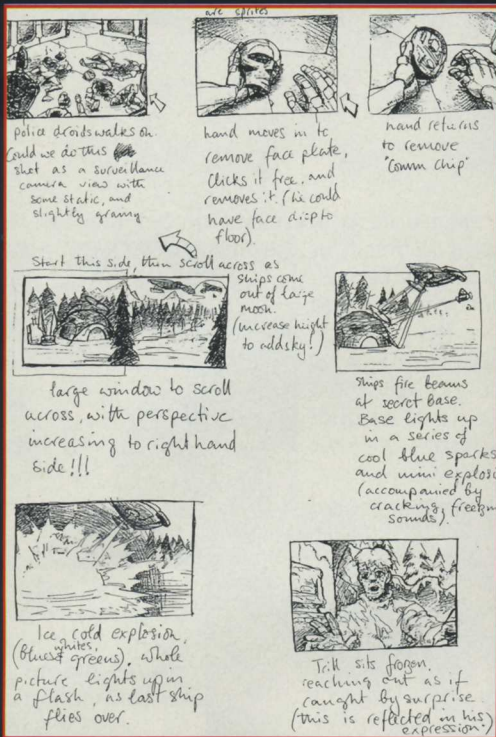 are sprites
police droids walks on.
Could we do this
shot as a surveillance
camera view with
some static, and
slightly grainy
hand moves in to
remove face plate,
Clicks it free, and
removes it. (We could
have face drop to
floor).
hand returns
to remove
"Comm Chip"
Start this side, then scroll across as
ships come
out of large
moon.
(increase height
to add sky!)
large window to scroll
across, with perspective
increasing to right hand
side!!!
Ships fire beams
at secret base.
Base lights up
in a series of
cool blue sparks
and mini explosi
(accompanied by
cracking, freezin
sounds).
Ice cold explosion.
whites,
(blues & greens). whole
picture lights up in
a flash, as last ship
flies over.
Trill sits frozen,
reaching out as if
caught by surprise
(this is reflected in his
expression.)